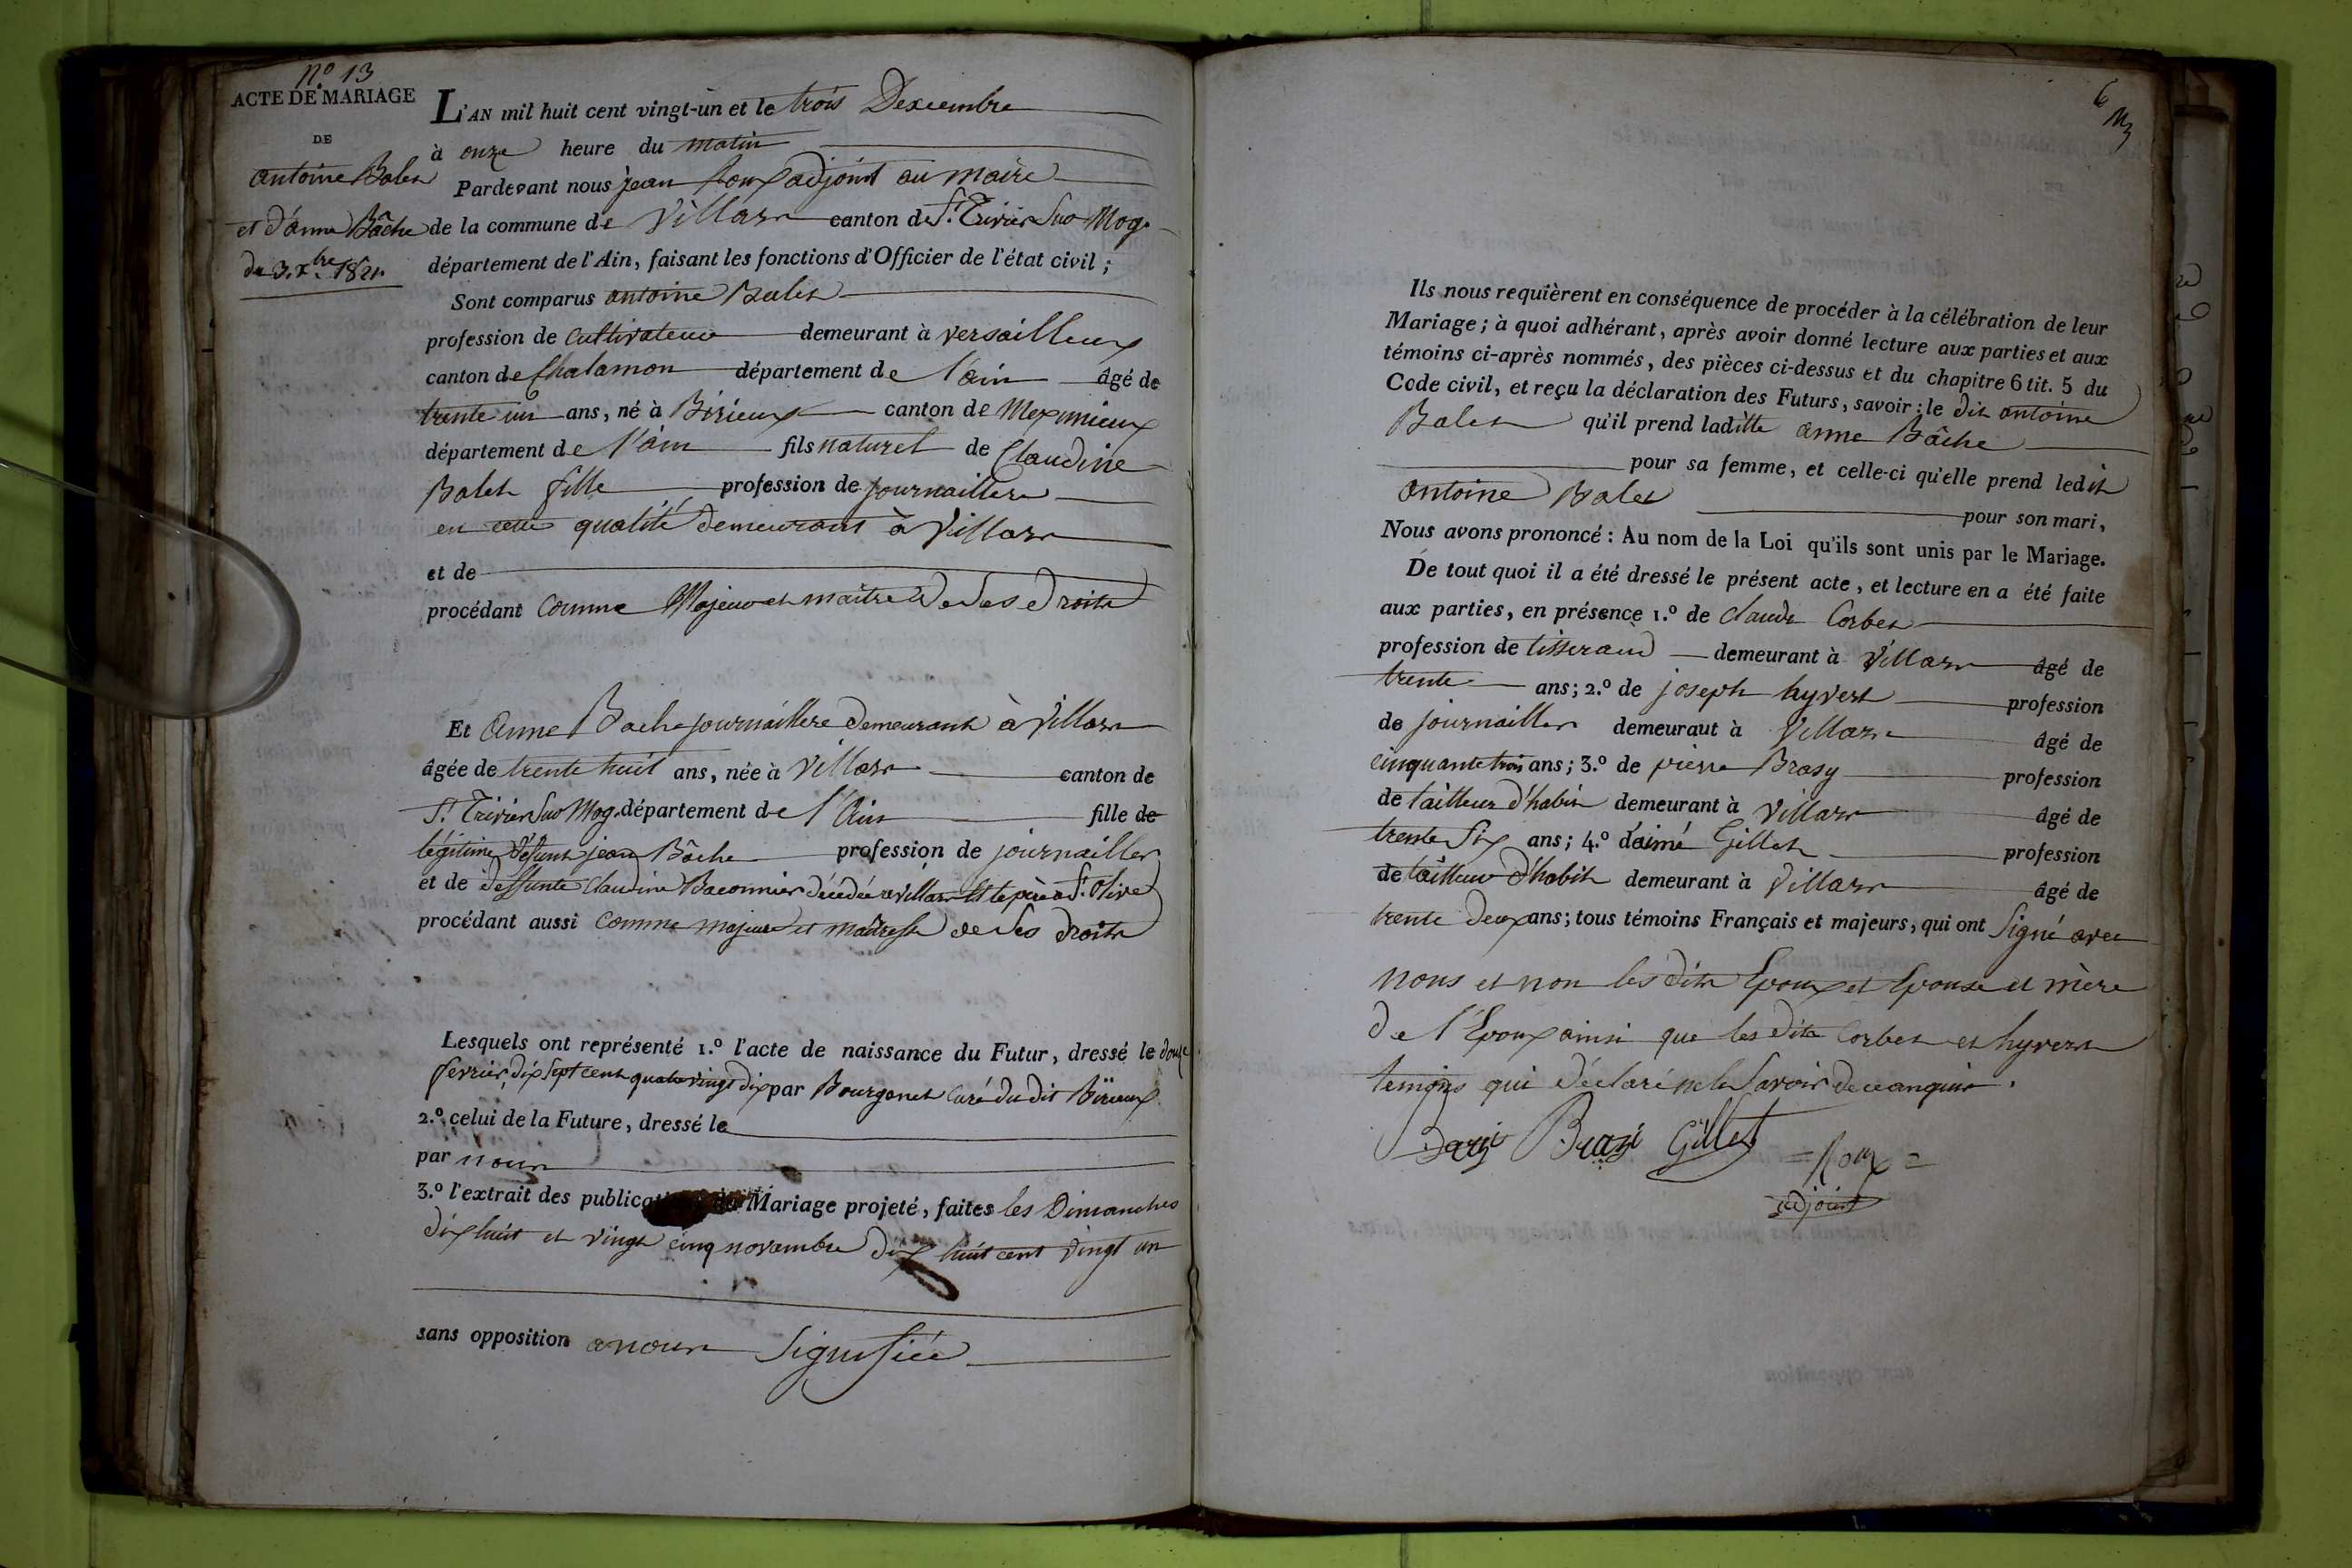 nº 13
ACTE DE MARIAGE
DE
antoine Balet
et d'anne Bâche
du 3. xbre 1821.
L'AN mil huit cent vingt-un et le trois Decembre
à onze heure du matin
Pardevant nous jean Roux adjoint au maire
de la commune de Villars canton de St. Trivier Sur Mog.
département de l'Ain, faisant les fonctions d'Officier de l'état civil ;
Sont comparus antoine Balet
profession de cultivateur demeurant à versailleux
canton de Chalamon département de l'ain âgé de
trente un ans, né à Birieux canton de Meximieux
département de l'ain fils naturel de Claudine
Balet fille profession de journaillere
en cette qualité demeurant à Villars
et de
procédant comme Majeur et maitre de Ses droits
Et Anne Bache journaillere demeurant à Villars
âgée de trente huit ans, née à Villars canton de
St. Trivier Sur Mog. département de l'Ain fille de
légitime défunt jean Bâche profession de journaillier
et de deffunte Claudine Baconnier décédée a villars Et le père a St. Olive
procédant aussi comme majeure et maitresse de Ses droits
Lesquels ont représenté 1.º l'acte de naissance du Futur, dressé le douze
fevrier dix Sept cent quatre vingt dix par Bourgonet Curé du dit birieux
2.º celui de la Future, dressé le
par nous
3.º l'extrait des publicat Mariage projeté, faites les Dimanches
dix huit et vingt cinq novembre dix huit cent vingt un
sans opposition a nous Signifiée
6
Ils nous requièrent en conséquence de procéder à la célébration de leur
Mariage ; à quoi adhérant, après avoir donné lecture aux parties et aux
témoins ci-après nommés, des pièces ci-dessus et du chapitre 6 tit. 5 du
Code civil, et reçu la déclaration des Futurs, savoir : le dit antoine
Balet qu'il prend laditte anne Bâche
pour sa femme, et celle-ci qu'elle prend ledit
antoine Balet pour son mari,
Nous avons prononcé : Au nom de la Loi qu'ils sont unis par le Mariage.
De tout quoi il a été dressé le présent acte, et lecture en a été faite
aux parties, en présence 1.º de claude Corbet
profession de tisserand demeurant à Villars âgé de
trente ans ; 2.º de joseph hyvert profession
de journaillier demeurant à Villars âgé de
cinquante trois ans ; 3.º de pierre Brasy profession
de tailleur d'habit demeurant à Villars âgé de
trente Six ans ; 4.º d'aimé Gillet profession
de tailleur d'habit demeurant à Villars âgé de
trente deux ans ; tous témoins Français et majeurs, qui ont Signé avec
nous et non les dits Epoux et Epouse et mère
de l'Epoux ainsi que les dits Corbet et hyvert
temoins qui déclaré ne le Savoir de ce enquis.
Brazi Gillet = Roux =
adjoint